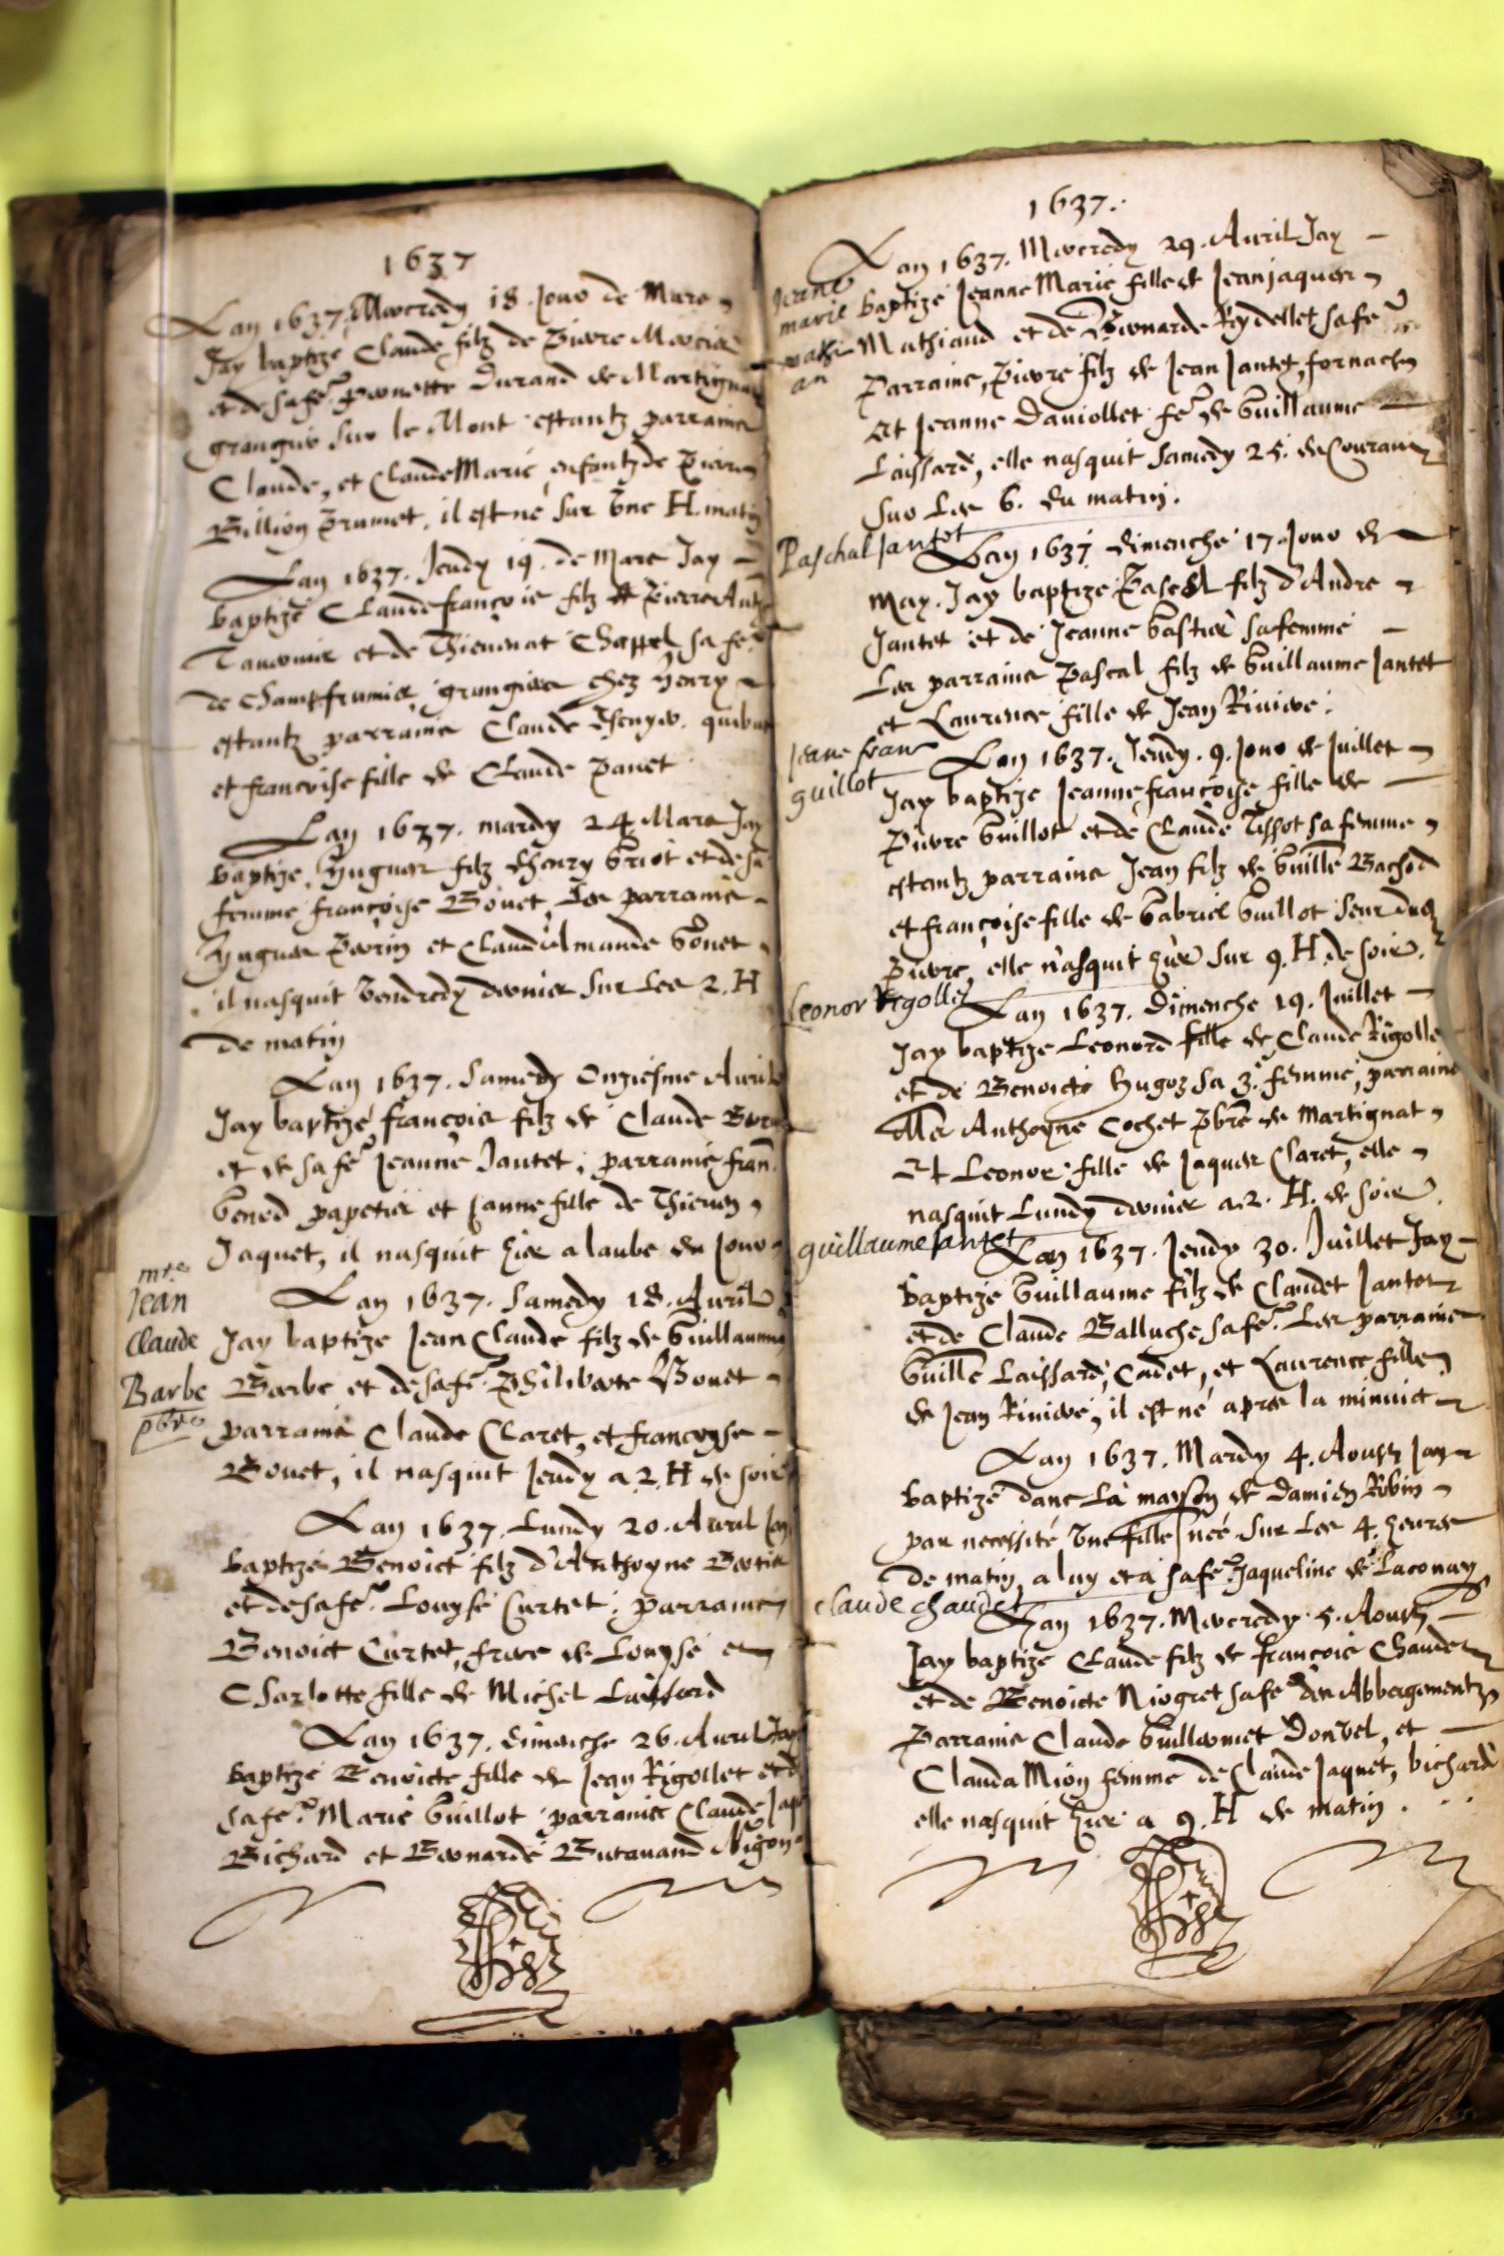 1637
Lan 1637. Mecredy 18. Jour de Mars
Jay baptizé Claude filz de Pierre Mercier
et de sa fe. Pernette Durand de Martignat
grangier sur le Mont estantz parrains
Claude, et ClaudeMarie enfantz de Pierre
Billion Prumet, il est né sur Une H. matin
Lan 1637. Jeudy 19. de Mars Jay
baptizé Claudefrançois filz de Pierre Ant.
Tavernier et de Thievenat Chappel sa fe.
de Champfrumier grangier chez Henry
estantz parrains Claude
et francoise fille de Claude Panet
Lan 1637. mardy 24 Mars Jay
baptize Hugues filz dhenry Griot et de sa
femme françoise Bonet, Les parrains
Hugues Perrin et Claudelmande Bonet
il nasquit Vendredy dernier sur Les 2. H
de matin
Lan 1637. Samedy Onziesme Avril
Jay baptizé françois filz de Claude
et de sa fe. Jeanne Jantet, parrains fran.
Benod papetier et Janne fille de Thieven
Jaquet, il nasquit hier a laube du Jour
mre
Jean
Claude
Barbe
pbre
Lan 1637. Samedy 18. Avril
Jay baptize Jean Claude filz de Guillaume
Barbe et de sa fe. Philiberte Bonet
parrains Claude Claret, et francoyse
Bonet, il nasquit Jeudy a 2 H de soir
Lan 1637. Lundy 20. Avril Jay
baptizé Benoict filz d'Anthoyne Bertier
et de sa fe. Louyse Curtet, parrains
Benoict Curtet, frere de Louyse et
Charlotte fille de Michel Laissard
Lan 1637. dimenche 26. Avril Jay
baptizé Benoicte fille de Jean Rigollet et de
sa fe. Marie Guillot parrains Claude Jaq
Bichard et Bernarde Butavand
1637.
Lan 1637. Mecredy 29. Avril Jay
Jeanne
marie
mathi
an
baptizé Jeanne Marie fille de Jeanjaques
Mathiaud et de Bernarde Reydellet sa fe.
Parrains, Pierre filz de Jean Jantet, fornachon
Et Jeanne Daviollet fe. de Guillaume
Laissard, elle nasquit Samedy 25. du Courant
sur Les 6. du matin.
Paschal Jantet
Lan 1637 dimenche 17. Jour de
May. Jay baptizé Pascal filz d'Andre
Jantet et de Jeanne Gastier sa femme
Les parrains Pascal filz de Guillaume Jantet
et Laurence fille de Jean Rivire.
Jeane fran
guillot
Lan 1637. Jeudy. 9. Jour de Juillet
Jay baptize Jeannefrançoise fille de
Pierre Guillot et de Claude Tissot sa femme
estantz parrains Jean filz de Guille Bachod
et françoise fille de Gabriel Guillot seur dud
Pierre, elle nasquit hier sur 9. H. de soir.
Leonor Rigollet
Lan 1637. Dimenche 19. Juillet
Jay baptize Leonord fille de Claude Rigollet
et de Benoicte Hugoz sa 3e. femme, parrains
Mre Anthoyne Cochet pbre de Martignat
Et Leonor fille de Jaques Claret, elle
nasquit Lundy dernier a 2. H. de soir.
guillaume Jantet
Lan 1637. Jeudy 30. Juillet Jay
baptizé Guillaume filz de Claudet Jantet
et de Claude Balluche sa fe. Les parrains
Guille Laissard, Cadet, et Laurence fille
de Jean Rivire, il est né apres la minuict
Lan 1637. Mardy 4. Aoust Jay
baptizé dans La mayson de Damien Robin
par necessité Une fille née sur Les 4. heures
de matin, a luy et a sa fe. Jaqueline de Laconay
claude chaudet
Lan 1637. Mecredy 5. Aoust
Jay baptizé Claude filz de françois Chaudet
et de Benoicte Niogret sa fe des Abbergementz
Parrains Claude Guillermet Donvel, et
Clauda Mion femme de Claude Jaquet, bichard
elle nasquit hier a 9. H de matin.